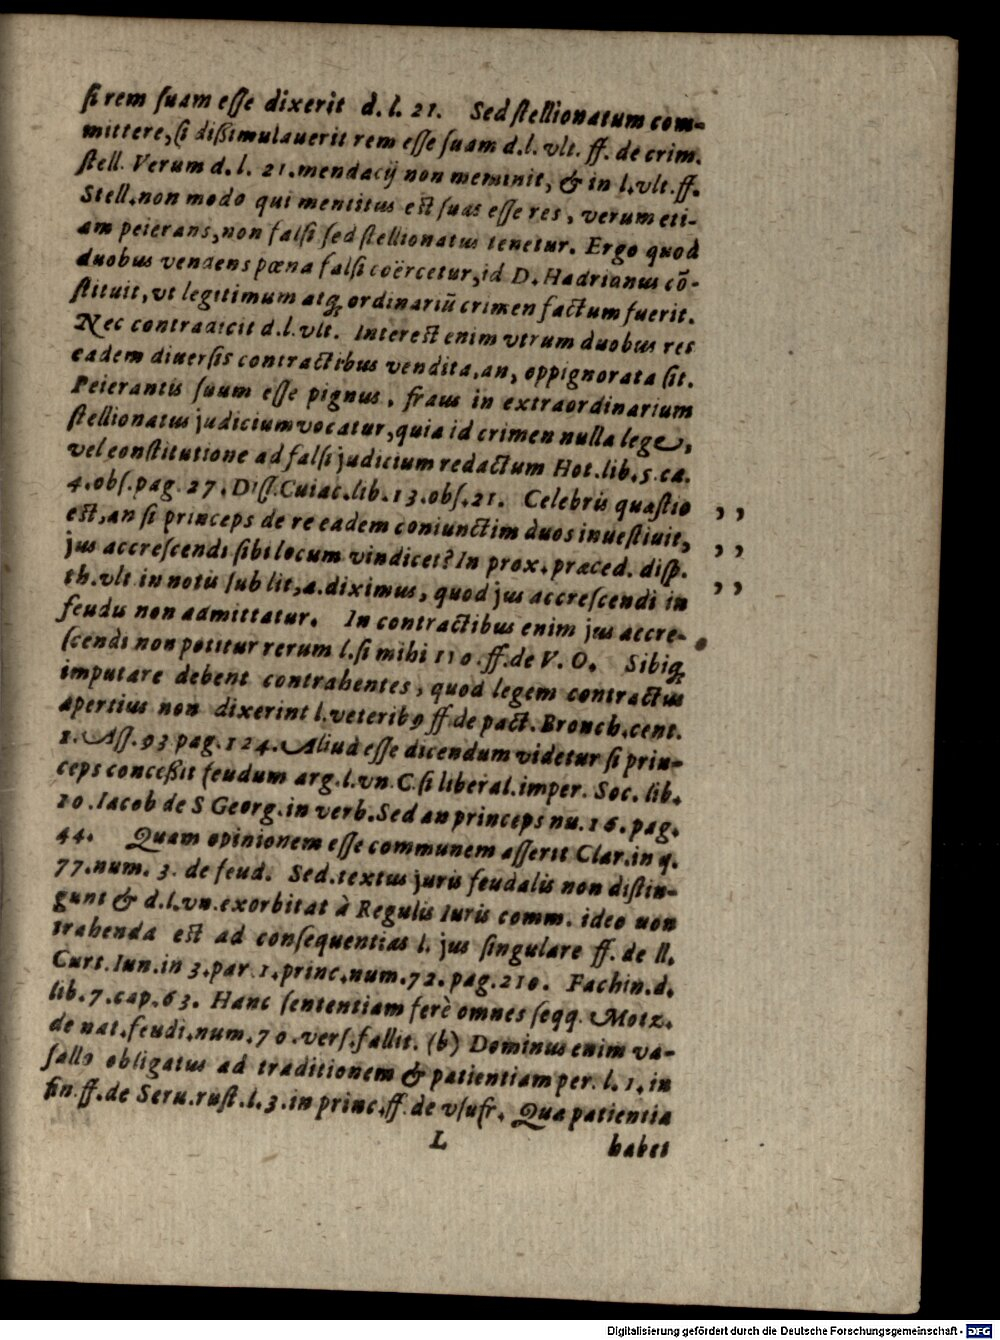 ſi rem ſuam eſſe dixerit d. l. 21. Sed ſtellionatum com-
mittere, ſi dißimulauerit rem eſſe ſuam d.l. vlt. ff. de crim.
ſtell. Verum d. l. 21. mendacij non meminit, & in l. vlt. ff.
Stell. non modo qui mentitus eſt ſuas eſſe res, verum eti-
am peierans, non falſi ſed ſtellionatus tenetur. Ergo quod
duobus vendens pœna falſi coërcetur, id D. Hadrianus cõ-
ſtituit, vt legitimum atq; ordinariũ crimen factum fuerit.
Nec contradicit d.l. vlt. Intereſt enim vtrum duobus res
eadem diuerſis contractibus vendita, an, oppignorata ſit.
Peierantis ſuum eſſe pignus, fraus in extraordinarium
ſtellionatus judicium vocatur, quia id crimen nulla lege,
vel conſtitutione ad falſi judicium redactum Hot. lib. 5. ca.
4. obſ. pag. 27. Diſſ. Cuiac. lib. 13. obſ. 21. Celebris quæſtio ,,
eſt, an ſi princeps de re eadem coniunctim duos inueſtiuit, ,,
jus accreſcendi ſibi locum vindicet? In prox. præced. diſp. ,,
th. vlt in notis ſub lit, a. diximus, quod jus accreſcendi in
feudis non admittatur. In contractibus enim jus accre-
ſcendi non potitur rerum l. ſi mihi 110. ff. de V. O. Sibiq;
imputare debent contrahentes, quod legem contractus
apertius non dixerint l. veterib9 ff de pact. Bronch. cent.
1. Aſſ. 93 pag. 124. Aliud eſſe dicendum videtur ſi prin-
ceps conceßit feudum arg. l. vn. C. ſi liberal. imper. Soc. lib.
10. Iacob de S Georg. in verb. Sed an princeps nu. 16. pag.
44. Quam opinionem eſſe communem aſſerit Clar. in q.
77. num. 3. de feud. Sed. textus juris feudalis non diſtin-
gunt & d.l. vn. exorbitat à Regulis Iuris comm. ideo non
trahenda eſt ad conſequentias l. jus ſingulare ff. de ll.
Curt. Iun. in 3. par. 1. princ. num. 72. pag. 210. Fachin. d.
lib. 7. cap. 63. Hanc ſententiam ferè omnes ſeqq. Motz.
de nat. feudi. num. 70. verſ. fallit. (b) Dominus enim va-
ſallo obligatus ad traditionem & patientiam per. l. 1. in
fin. ff. de Seru. ruſt. l. 3. in princ. ff. de vſufr. Qua patientia
L habet
Digitalisierung gefördert durch die Deutsche Forschungsgemeinschaft - DFG